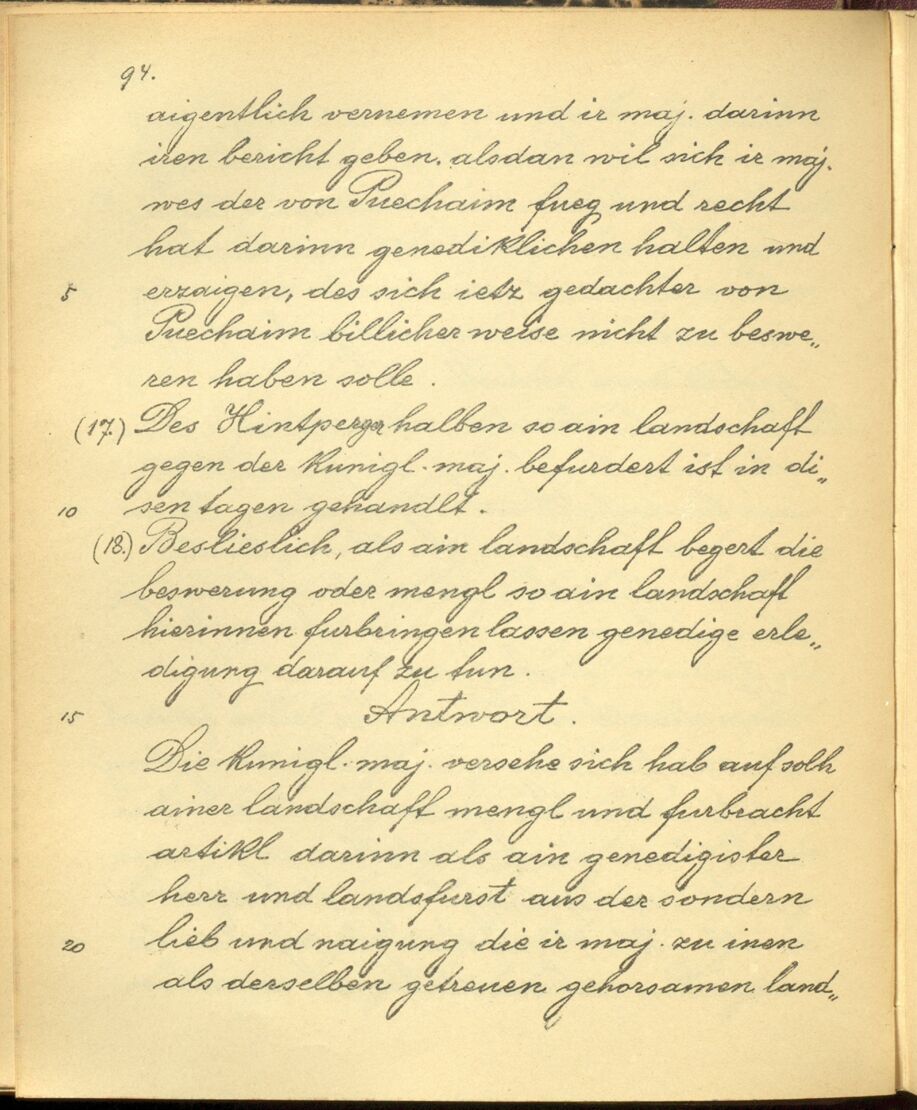 94.
aigentlich vernemen und ir maj. darinn
iren bericht geben. alsdan wil sich ir maj.
wes der von Puechaim fueg und recht
hat darinn genediklichen halten und
5 erzaigen, des sich ietz gedachter von
Puechaim billicher weise nicht zu beswe„
ren haben solle.
(17.) Des Hintperger halben so ain landschaft
gegen der kunigl. maj. befurdert ist in di„
10 sen tagen gehandlt.
(18.) Beslieslich, als ain landschaft begert die
beswerung oder mengl so ain landschaft
hierinnen furbringen lassen genedige erle„
digung darauf zu tun.
15 Antwort.
Die kunigl. maj. versehe sich hab auf solh
ainer landschaft mengl und furbracht
artikl darinn als ain genedigister
herr und landsfurst aus der sondern
20 lieb und naigung die ir maj. zu inen
als derselben getreuen gehorsamen land„